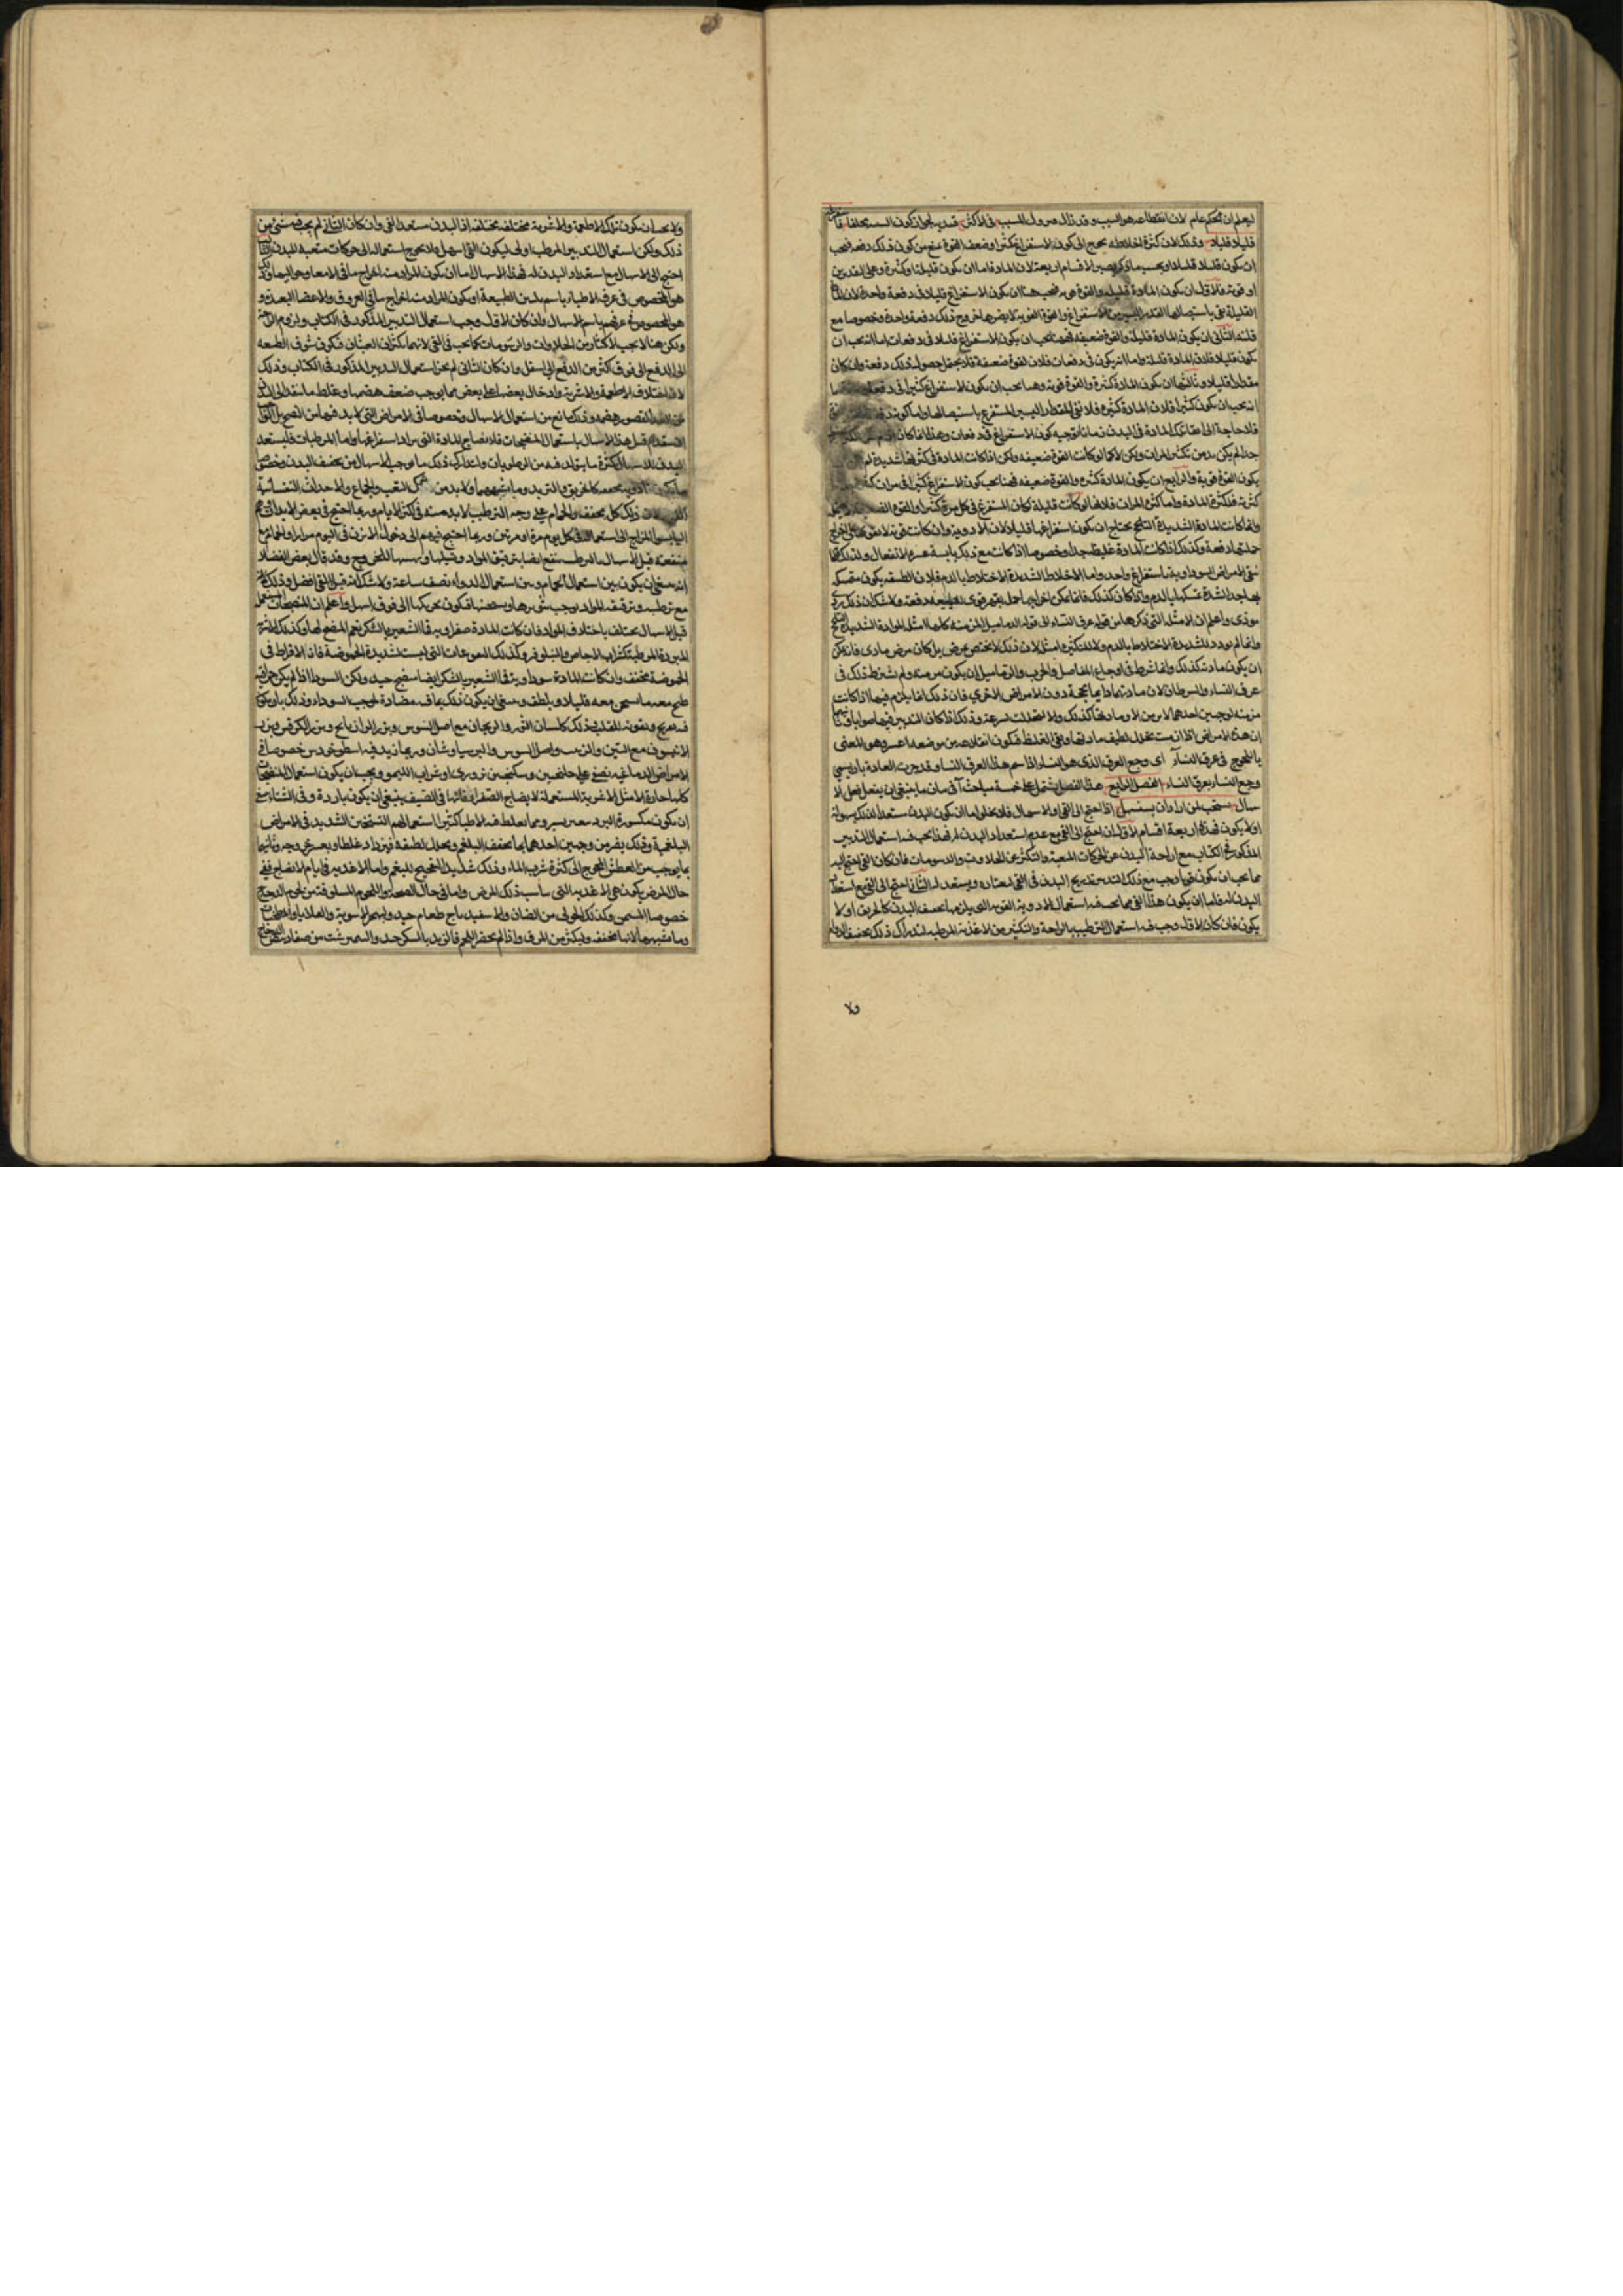 ليعلم ان الحكم عام لان انقطاعه هو السبب وقد زال هو ول المسبب في الاكثر قد يه لجواز كون السبب مخلفا
قليلا قليلا وذلك لان كثرة اخلاطه يحوج الى كون الاستفراغ كثيرا وضعف القوة يمنع من كون ذلك دفعة فيجب
ان يكون قليلا قليلا وبحسب ما ذكر يصير الاقسام اربعة لان المادة اما ان يكون قليلة او كثيرة وعلى التقديرين
او قوية فالاول ان يكون المادة قليلة والقوة قوية فيجب هنا ان يكون الاستفراغ قليلا في دفعة واحدة لان المادة
القليلة يفي باستيصالها القدر اليسير من الاستفراغ والقوة القوية لا يضرها خروج ذلك دفعة واحدة وخصوصا مع
قلته الثاني ان يكون المادة قليلة والقوة ضعيفة فههنا يجب ان يكون الاستفراغ قليلا في دفعات اما انه يجب ان
يكون قليلا فلان المادة قليلة واما انه يكون في دفعات فلان القوة ضعيفة فلا يحتمل حصول ذلك دفعة وان كان
مقدارا قليلا وثالثها ان يكون المادة كثيرة والقوة قوية وههنا يجب ان يكون الاستفراغ كثيرا في دفعة
انه يجب ان يكون كثيرا فلان المادة كثيرة فلا يفي المقدار اليسير المستفرغ باستيصالها واما كونه دفعة
فلا حاجة الى ابقاء تلك المادة في البدن زمانا لو جبه كون الاستفراغ في دفعات وهذا انما كان
جدا لم يكن بد من تكثير المرات ولكن لا كما لو كانت القوة ضعيفة ولكن اذا كانت المادة في كثرتها شديدة لم
يكون القوة قوية والرابع ان يكون المادة كثيرة والقوة ضعيفة فهنا يجب كون الاستفراغ كثيرا في مرات
كثيرة فلكثرة المادة واما كثرة المرات فلانها لو كانت قليلة لكان المستفرغ في كل مرة كثيرا والقوة
وانما كانت المادة الشديدة التلحج يحتاج ان يكون استفراغها قليلا قليلا لان الادوية وان كانت قوية لا تقوى على اخراج
جملتها دفعة وكذلك اذا كانت المادة غليظة جدا وخصوصا اذا كانت مع ذلك يابسة عسرة الانفعال ولذلك
تنقى الامراض السوداوية باستفراغ واحد واما الاخلاط الشديدة الاختلاط بالدم فلان الطبيعة يكون متمسكة
بها جدا لشدة تمسكها بالدم واذا كان كذلك فانما يمكن اخراجها جملة بقهر قوي للطبيعة دفعة ولا شك ان ذلك رديء
مؤذي واعلم ان الامثلة التي ذكرها من قوله عرق النساء الى قوله الدماميل المزمنة كلها امثلة المواد الشديدة التلحج
وانما لم يورد للشديدة الاختلاط بالدم ولا للكثيرة امثلة لان ذلك لا يختص بمرض بل كان مرض مادي فانه يمكن
ان يكون مادته كذلك وانما شرط في اوجاع المفاصل والجرب والدماميل ان يكون مزمنة ولم يشترط ذلك في
عرق النساء والسرطان لان مادتهما دايما يجمه دون الامراض الاخرى فان ذلك انما يلزم فيها اذا كانت
مزمنة لوجهين احدهما لا يزمن الا ومادتها كذلك والا انتقلت بسرعة وذلك اذا كان التدبير فيها صوابا وثانيهما
ان هذه الامراض اذا ازمنت تحلل لطيف مادتها وبقي الغليظ فيكون انقلاعه من موضعه اعسر وهو المعنى
بالتلحج في عرق النساء اي وجع العرق الذي هو النساء اذ اسم هذا العرق النسا وقد جرت العادة بان يسمى
وجع النساء بعرق النساء الفصل الرابع هذا الفصل يشتمل على خمسة مباحث آ في بيان ما ينبغي ان يفعل قبل الا
سهال يجب لمن اراد ان يستسهل اذا احتيج الى القيء او الاسهال فلا يخلو اما ان يكون البدن مستعدا لذلك بسهولة
او لا يكون فهذه اربعة اقسام الاول ان احتيج الى القيء مع عدم استعداد البدن له فهذا يجب فيه استعمال التدبير
المذكور في الكتاب مع اراحة البدن عن الحركات المتعبة والتكثير من الحلاوات والدسومات فان كان القيء احتيج اليه
مما يجب ان يكون قويا وجب مع ذلك التدبير تدريج البدن في القيء ليعتاده ويستعد له الثاني احتيج الى القيء مع استعداد
البدن له فاما ان يكون هذا القيء مما يجب فيه استعمال الادوية القوية التي يلزمها تجفيف البدن كالخربق او لا
يكون فان كان الاول وجب فيه استعمال الترطيب بالراحة والتكثير من الاغذية المرطبة ليتدارك ذلك تجفيف الدواء
ولا
ولا يجب ان يكون تلك الاطعمة والاشربة مختلفة مختلفة اذ البدن مستعد للقيء وان كان الثاني لم يجب فيه شيء من
ذلك ولكن استعمال التدبير المرطب اولى ليكون القيء اسهل ولا يحوج استعماله الى حركات متعبة للبدن
احتيج الى الاسهال مع استعداد البدن له فهذا الاسهال اما ان يكون المراد منه اخراج ما في الامعاء وحواليها وذلك
هو المخصوص في عرف الاطباء باسم تليين الطبيعة او يكون المراد منه اخراج ما في العروق والاعضاء البعيدة و
هو المخصوص في عرفهم باسم الاسهال وان كان الاول وجب استعمال التدبير المذكور في الكتاب ولزوم الراحة
ولكن هنا لا يجب الاكثار من الحلاوات والدسومات كما يجب في القيء لانهما يكثران الغثيان فيكون شوق الطبيعة
الى الدفع الى فوق اكثر من الدفع الى اسفل وان كان الثاني لم يجز استعمال التدبير المذكور في الكتاب وذلك
لان اختلاف الاطعمة والاشربة وادخال بعضها على بعض مما يوجب ضعف هضمها وغلظ ما ينفذ الى البدن
لقصور هضمه وذلك مانع من استعمال الاسهال وخصوصا في الامراض التي لا بد فيها من النضج بل
ان يستقدم قبل هذا الاسهال باستعمال المنضجات فلانضاج المادة التي يراد استفراغها واما المرطبات فليستعد
البدن للاسهال لكثرة ما يتولد فيه من الرطوبات وليتدارك ذلك ما يوجبه الاسهال من تجفيف البدن وخصوصا
كالخربق والتربد وما اشبههما ولا بد من ترك التعب والجماع والاحداث النفسانية
لان ذلك كله يجفف والحمام على وجه الترطيب لا بد منه في اكثر الايام وربما احتيج في بعض الابدان
اليابسة المزاج الى استعماله في كل يوم مرة او مرتين وربما احتيج فيهم الى دخول الابزن في اليوم مرارا والحمام مع
منفعته قبل الاسهال بالترطيب ينفع ايضا بترقيق المواد وتسييلها وتهيئتها للخروج وقد قال بعض الفضلاء
انه ينبغي ان يكون بين استعمال الحمام وبين استعمال الدواء نصف ساعة ولا شك انه قبل القيء افضل وذلك لانه
مع ترطيبه وترقيقه المواد يوجب تثويرها وتسخينها فيكون تحريكها الى فوق اسهل واعلم ان المنضجات المستعملة
قبل الاسهال يختلف باختلاف المواد فان كانت المادة صفراوية فماء الشعير بالسكر نعم المنضج لها وكذلك الاشربة
المبردة المرطبة كشراب الاجاص والنيلوفر وكذلك اللعوقات التي ليست شديدة الحموضة فان الافراط في
الحموضة مجفف وان كانت المادة سوداوية فماء الشعير بالسكر ايضا منضج جيد ولكن السوداء اذا لم يكن
طبخ معه ما يسخن معه قليلا ويلطف وينبغي ان يكون ذلك بما فيه مضادة لموجب السوداء وذلك بان يكون
فيه تفريح وتقوية للقلب وذلك كلسان الثور والريحان مع اصل السوس وبزر الرازيانج وبزر الكرفس وبزر
الانيسون مع التين والزبيب واصل السوس والبرسياوشان وربما زيد فيه اسطوخودس خصوصا في
الامراض الدماغية يصفى على جلنجبين وسكنجبين بزوري او شراب الليمو ويجب ان يكون استعمال المنضجات
كلها حارة الا مثل الاشربة المستعملة لانضاج الصفراء فانها في الصيف ينبغي ان يكون باردة وفي الشتاء ينبغي
ان يكون مكسورة البرد بتسخين يسير ومما يغلط فيه الاطباء كثيرا استعمالهم التسخين الشديد في الامراض
البلغمية وذلك يضر من وجهين احدهما بما يجفف البلغم ويحلل لطيفه فيزداد غلظا ويعسر خروجه وثانيهما
بما يوجب من العطش المحوج الى كثرة شرب الماء وذلك شديد التفجيج للبلغم واما الاغذية في ايام الانضاج ففي
حال المرض يكون هي الاغذية التي تناسب ذلك المرض واما في حال الصحة فاللحوم المسلوقة من لحوم الدجاج
خصوصا المسمن وكذلك الحولي من الضان والاسفيدباج طعام جيد وليهجر الاشوية والقلايا والمطجنات
وما يشبهها لانها مجففة وليكثر من المرق واذا لم يحضر اللحم فالزبد بالسكر جيد والنيمرشت من صفار بيض الدجاج